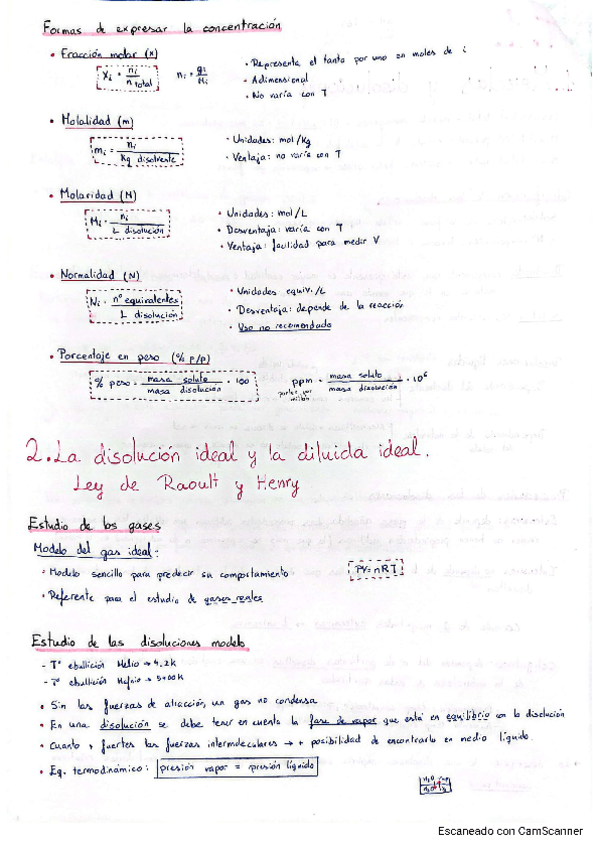 Formas de expresar la concentración
• Fracción molar (x)
Xi = ni / n total
ni = gi / Mi
• Representa el tanto por uno en moles de i
• Adimensional
• No varía con T
• Molalidad (m)
mi = ni / Kg disolvente
• Unidades: mol/Kg
• Ventaja: no varía con T
• Molaridad (M)
Mi = ni / L disolución
• Unidades: mol/L
• Desventaja: varía con T
• Ventaja: facilidad para medir V
• Normalidad (N)
Ni = nº equivalentes / L disolución
• Unidades equiv./L
• Desventaja: depende de la reacción
• Uso no recomendado
• Porcentaje en peso (% p/p)
% peso = masa soluto / masa disolución · 100
ppm = masa soluto / masa disolución · 10⁶
partes por millón
2. La disolución ideal y la diluida ideal.
Ley de Raoult y Henry
Estudio de los gases
Modelo del gas ideal:
• Modelo sencillo para predecir su comportamiento
PV = nRT
• Referente para el estudio de gases reales
Estudio de las disoluciones modelo
- Tª ebullición Helio → 4.2K
- Tª ebullición Hafnio → 5400K
• Sin las fuerzas de atracción, un gas no condensa
• En una disolución se debe tener en cuenta la fase de vapor que está en equilibrio con la disolución
• Cuanto + fuertes las fuerzas intermoleculares → + posibilidad de encontrarlo en medio líquido.
• Eq. termodinámico: presión vapor = presión líquido
Escaneado con CamScanner